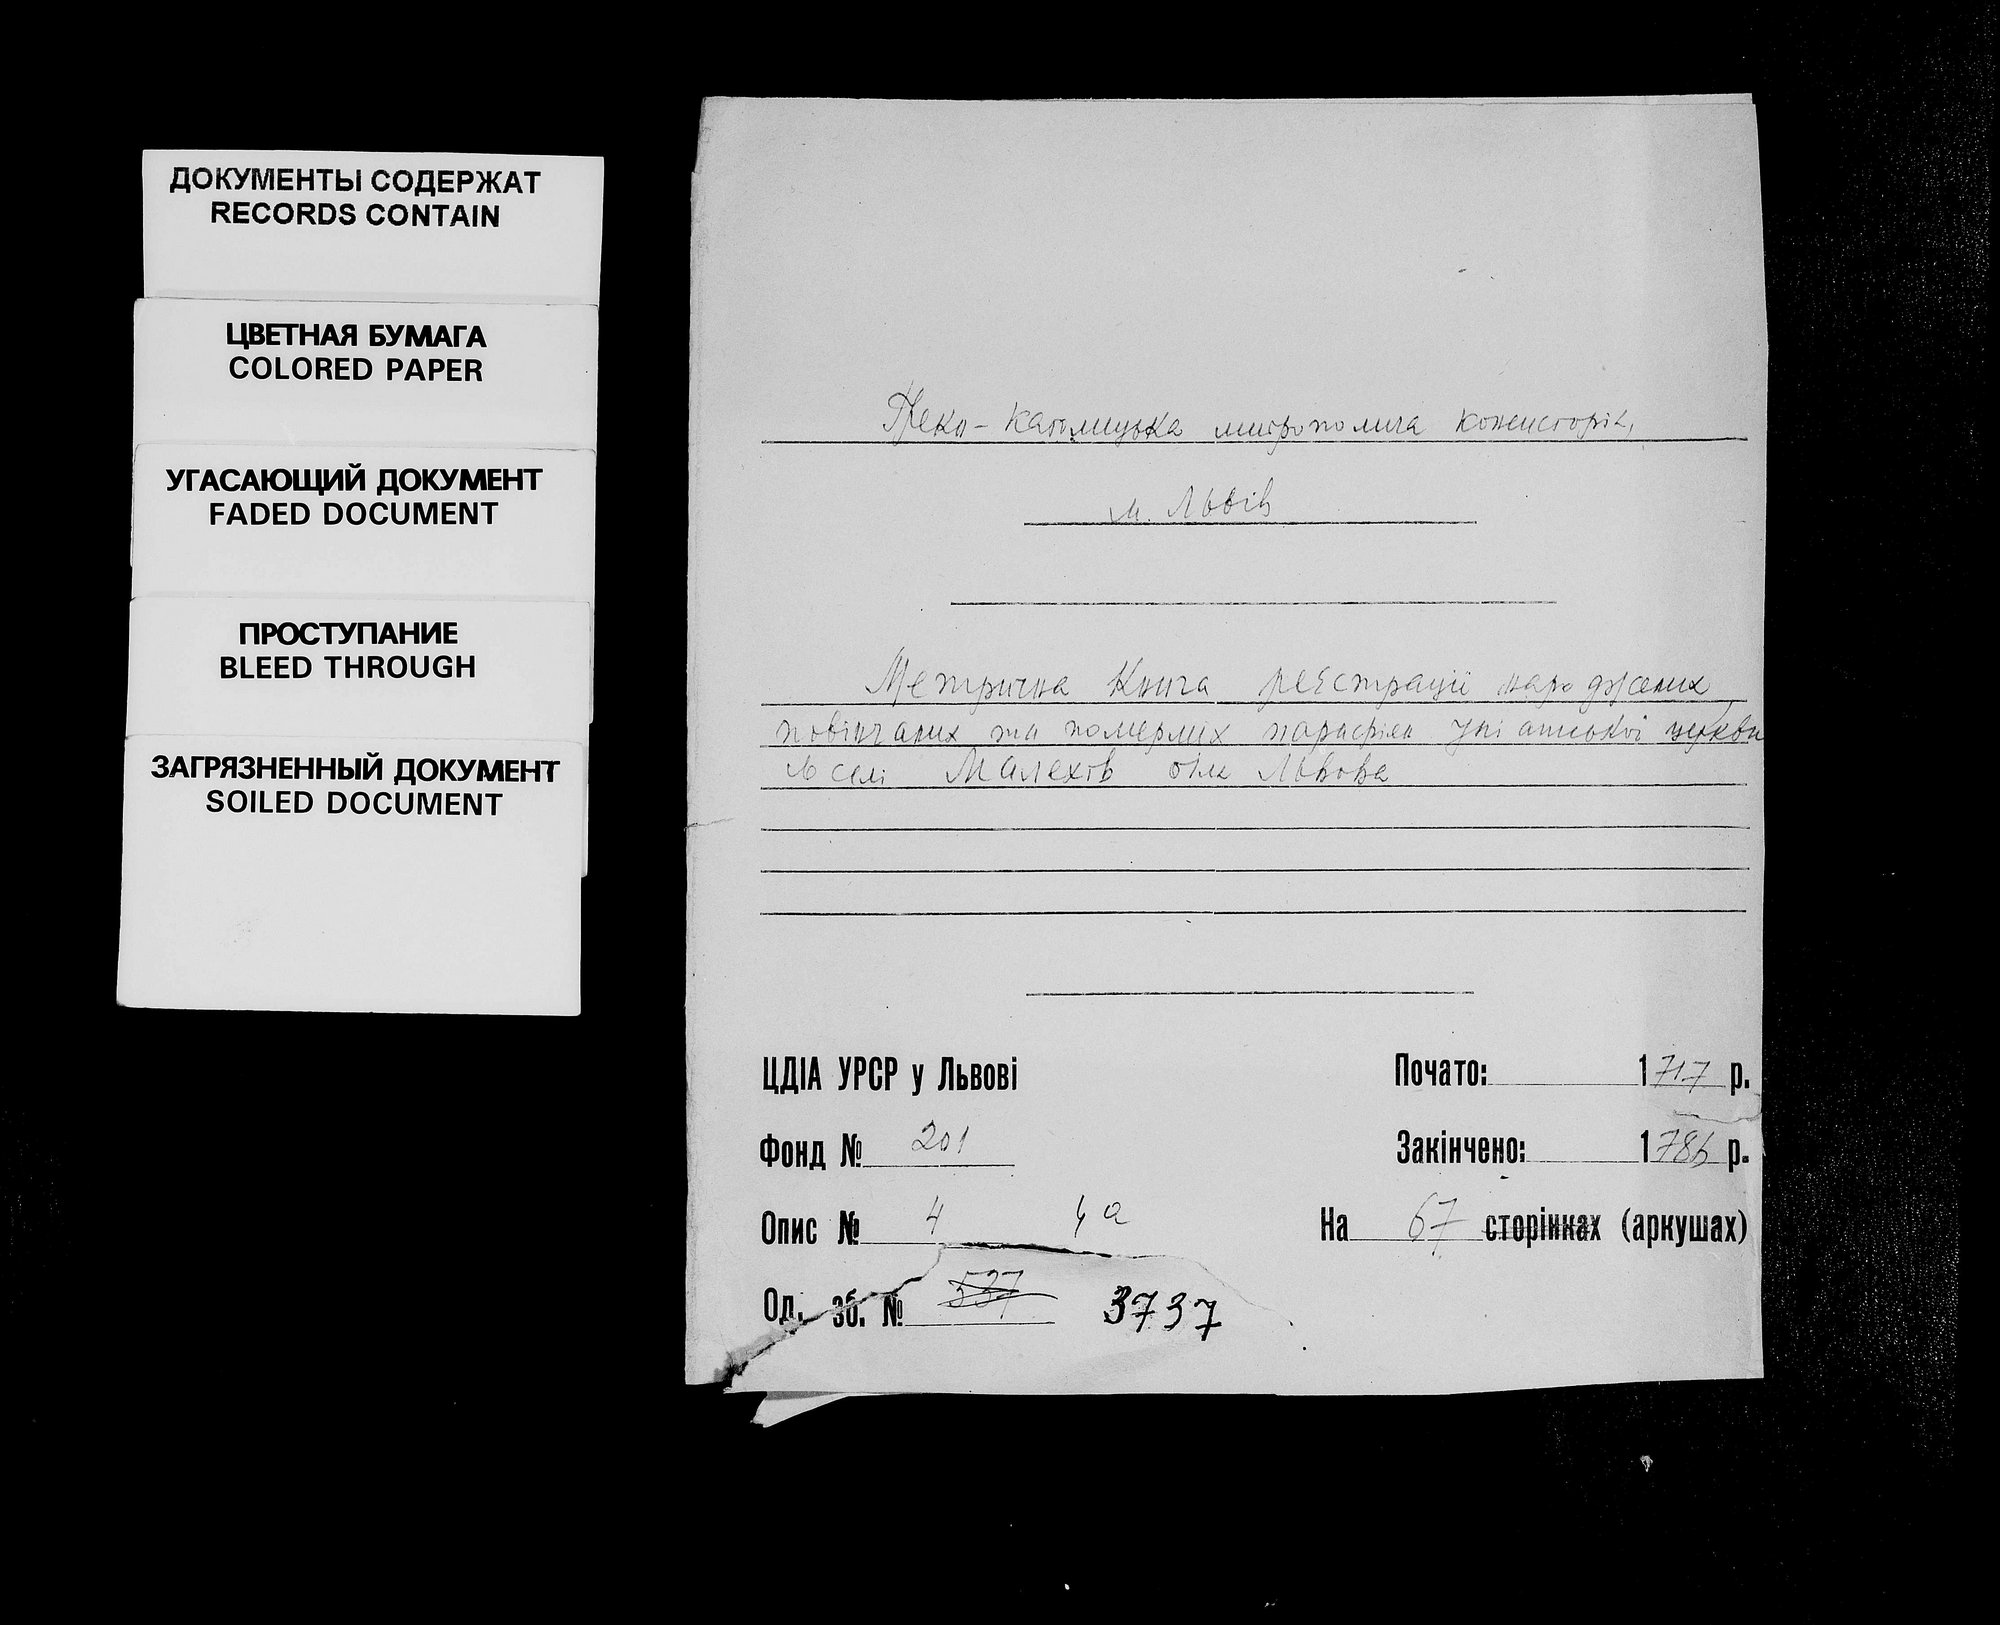 ДОКУМЕНТЫ СОДЕРЖАТ
RECORDS CONTAIN
ЦВЕТНАЯ БУМАГА
COLORED PAPER
УГАСАЮЩИЙ ДОКУМЕНТ
FADED DOCUMENT
ПРОСТУПАНИЕ
BLEED THROUGH
ЗАГРЯЗНЕННЫЙ ДОКУМЕНТ
SOILED DOCUMENT
Греко-католицька митрополича консисторія,
м. Львів
Метрична книга реєстрації народжених
повінчаних та померлих парафіян уніатської церкви
в селі Малехів біля Львова
ЦДІА УРСР у Львові
Почато: 1717 р.
Фонд № 201
Закінчено: 1786 р.
Опис № 4 4а
На 67 сторінках (аркушах)
Од. зб. № 537 3737